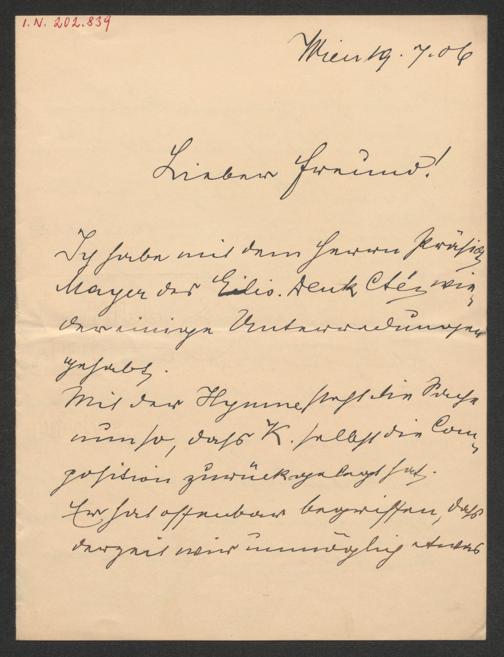 I.N. 202.839
Wien 19. 7. 06
Lieber Freund!
Ich habe mit dem Herrn Präsid.
Mayer des Elis. Denk Cté's wie-
der einige Unterredungen
gehabt.
Mit der Hymne steht die Sache
nun so, dass K. selbst die Com-
position zurückgelegt hat.
Er hat offenbar begriffen, dass
derzeit wir unmöglich etwas